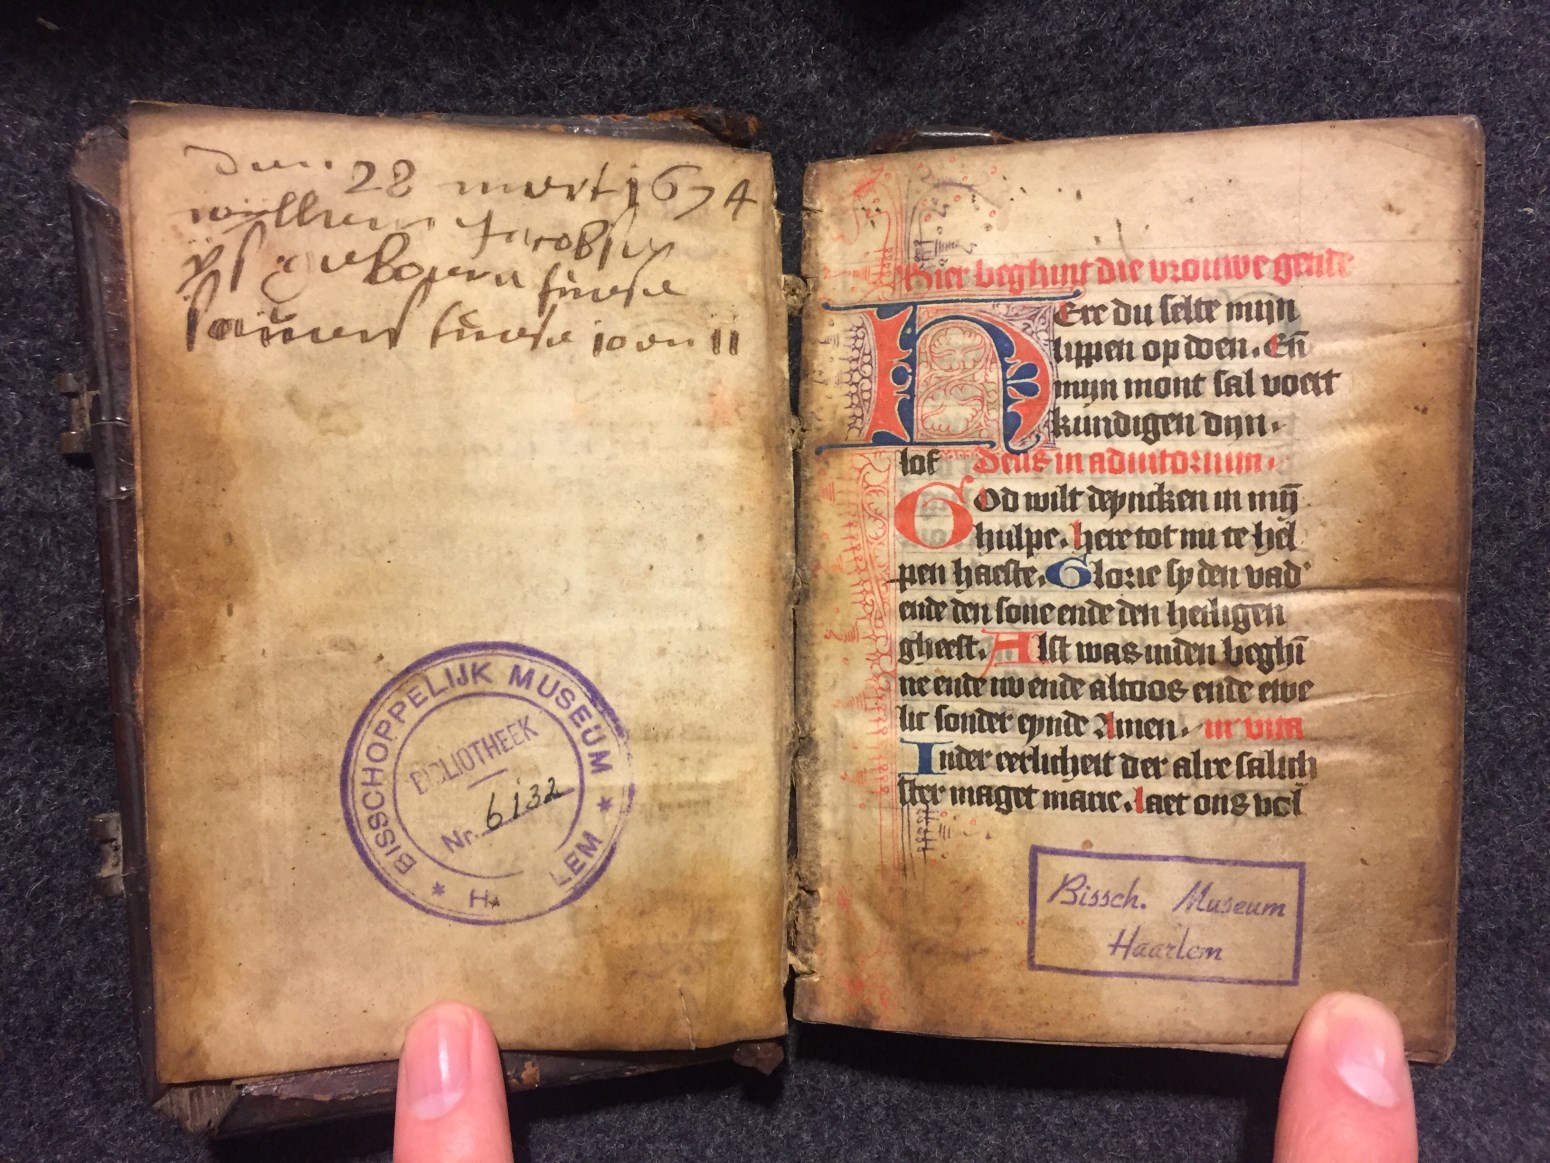 den 28 mert 1674
willem Jacobsen
ÿs geboren
BISSCHOPPELIJK MUSEUM
* H LEM *
BIBLIOTHEEK
Nr. 6132
Hier beghint die vrouwe getide
HEre du selte mijn
lippen op doen. En̄
mijn mont sal voert
kundigen dijn
lof Deus in adiutorium.
GOd wilt depncken in mij̄
hulpe. here tot mi te hel
pen haeste. Glorie sy den vad'
ende den sone ende den heiligen
gheest. Alst was inden beghī
ne ende nv ende altoos ende ewe
lic sonder eynde Amen. 
Inder eerlicheit der alre salich
ster maget marie. laet ons vel
Bissch. Museum
Haarlem